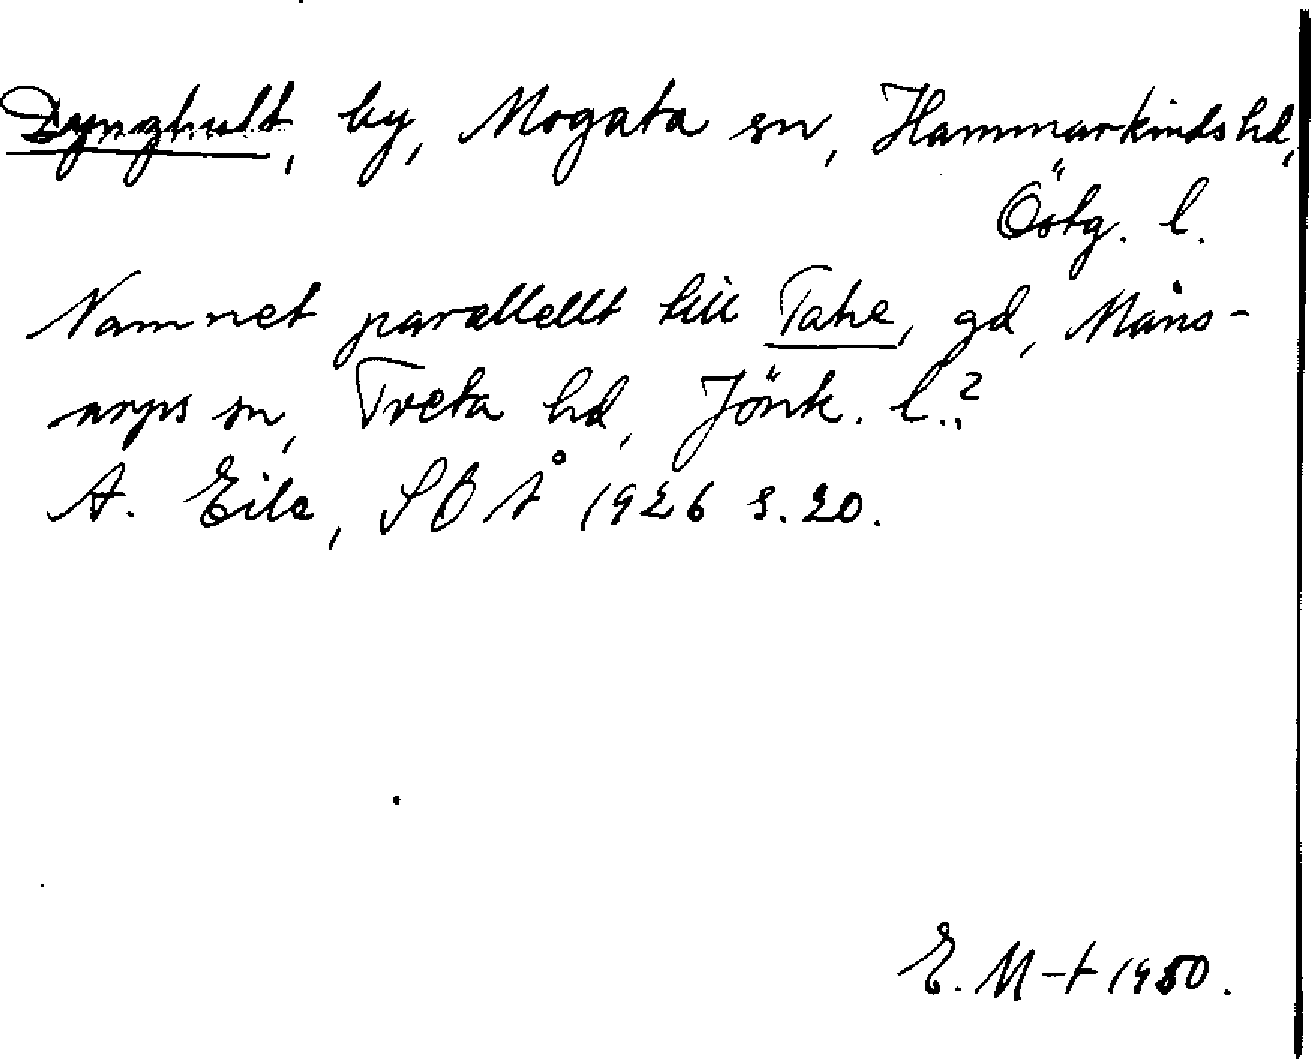 Dynghult, by, Mogata sn, Hammarkinds hd,
Östg. l.
Namnet parallellt till Tahe, gd, Måns-
arps sn, Tveta hd, Jönk. l.?
A. Ejle, SOÅ 1926 s. 20.
E. M-t 1950.